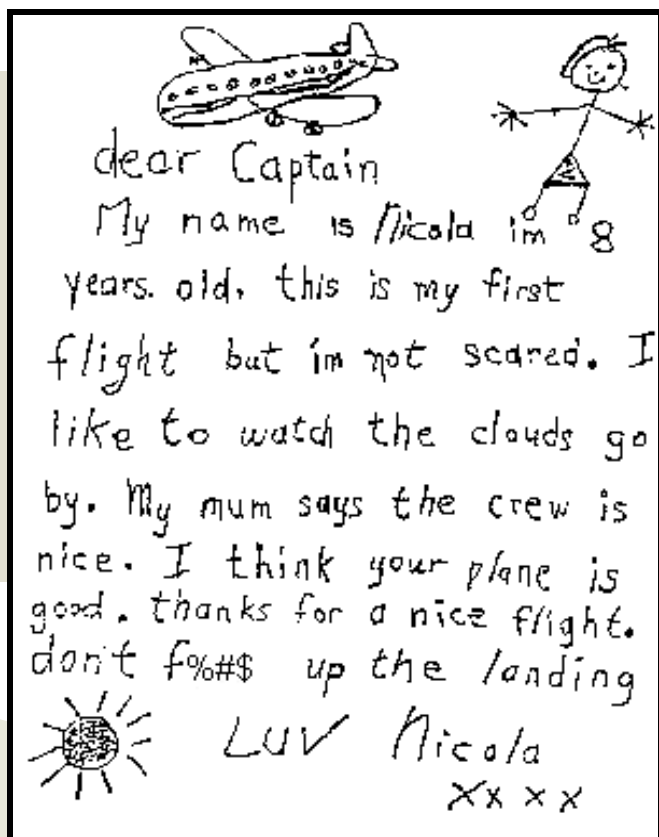 dear Captain
My name is Nicola im 8
years. old, this is my first
flight but im not scared. I
like to watch the clouds go
by. My mum says the crew is
nice. I think your plane is
good. thanks for a nice flight.
don't f%#$ up the landing
LUV Nicola
xxxx